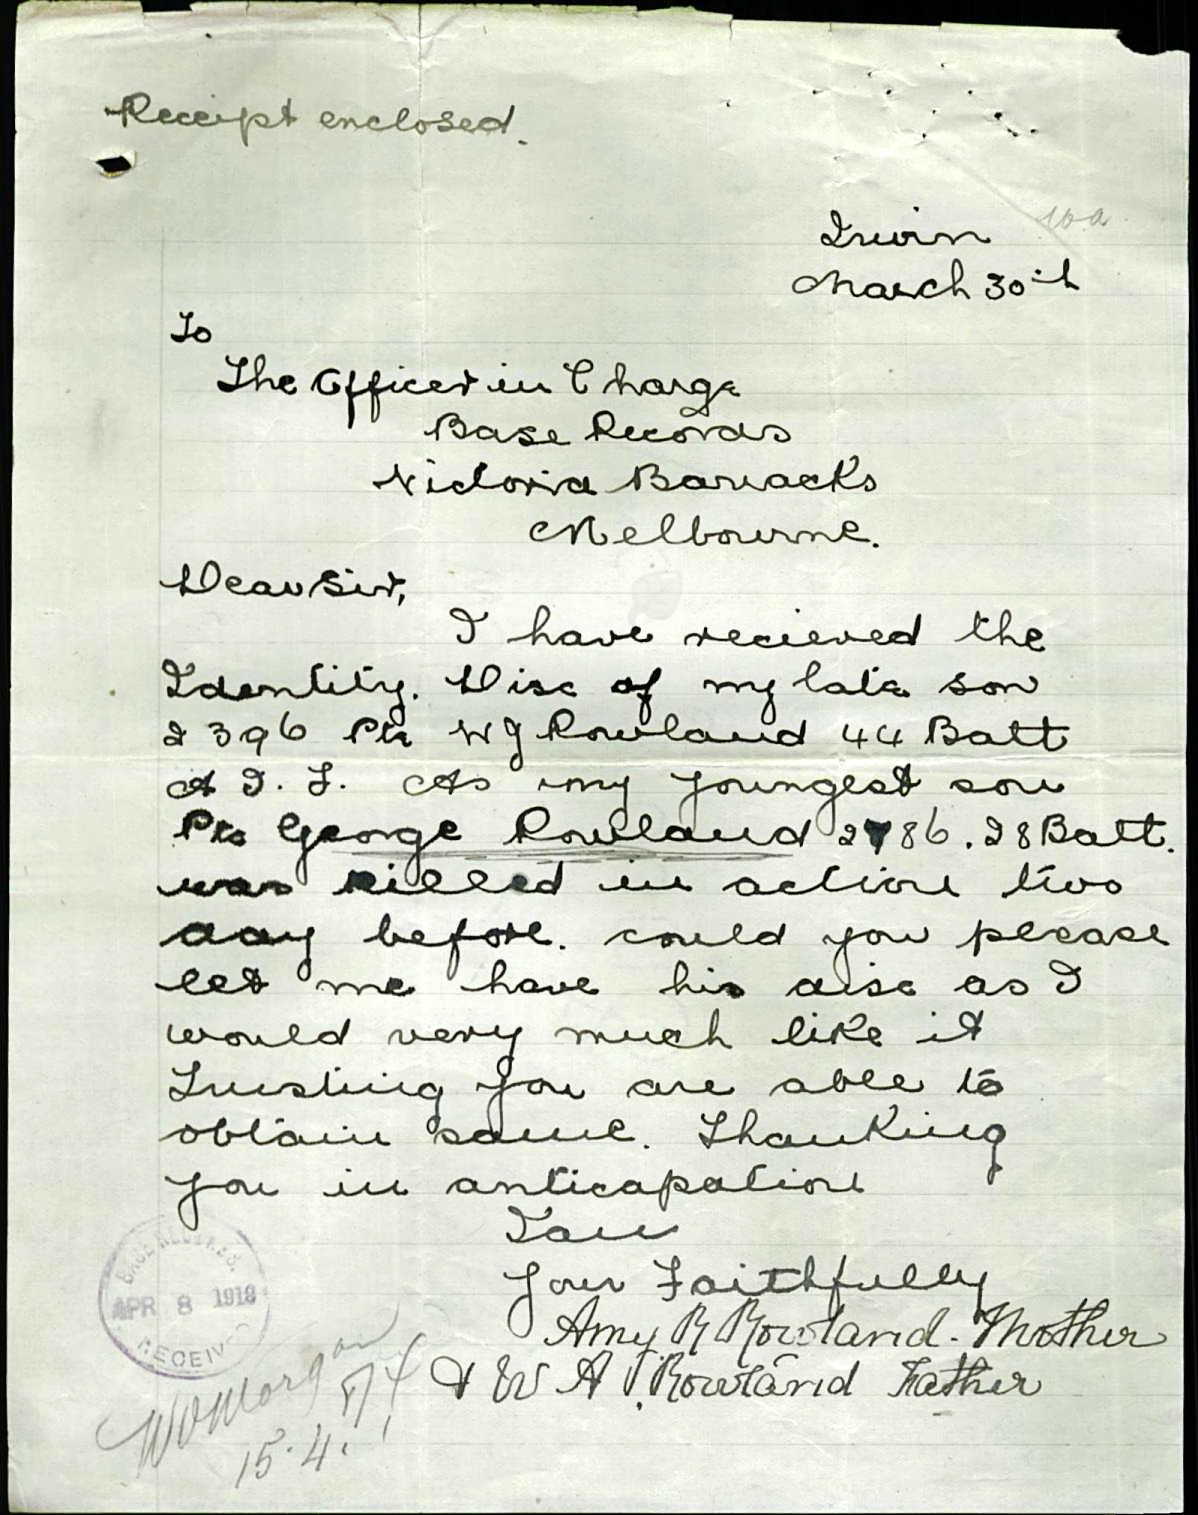 Receipt enclosed.
10a
Irwin
March 30th
To
The Officer in Charge
Base Records
Victoria Barracks
Melbourne.
Dear Sir,
I have recieved the
Identity. Disc of my late son
2396 Pte W J Rowland 44 Batt
A I. F. As my youngest son
Pte George Rowland 2786. 28 Batt.
was killed in action two
day before. could you please
let me have his disc as I
would very much like it
Trusting you are able to
obtain same. Thanking
you in anticapation
I am
Your Faithfully
Amy R Rowland. Mother
& W A. Rowland Father
BASE RECORDS.
APR 8 1918
RECEIVED
15.4.